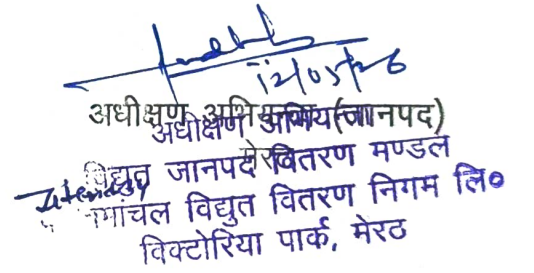 12/05/26
अधीक्षण अभियन्ता (जानपद)
अधीक्षण अभियन्ता
मेरठ
विद्युत जानपद वितरण मण्डल
Jitendra
पश्चिमांचल विद्युत वितरण निगम लि०
विक्टोरिया पार्क, मेरठ